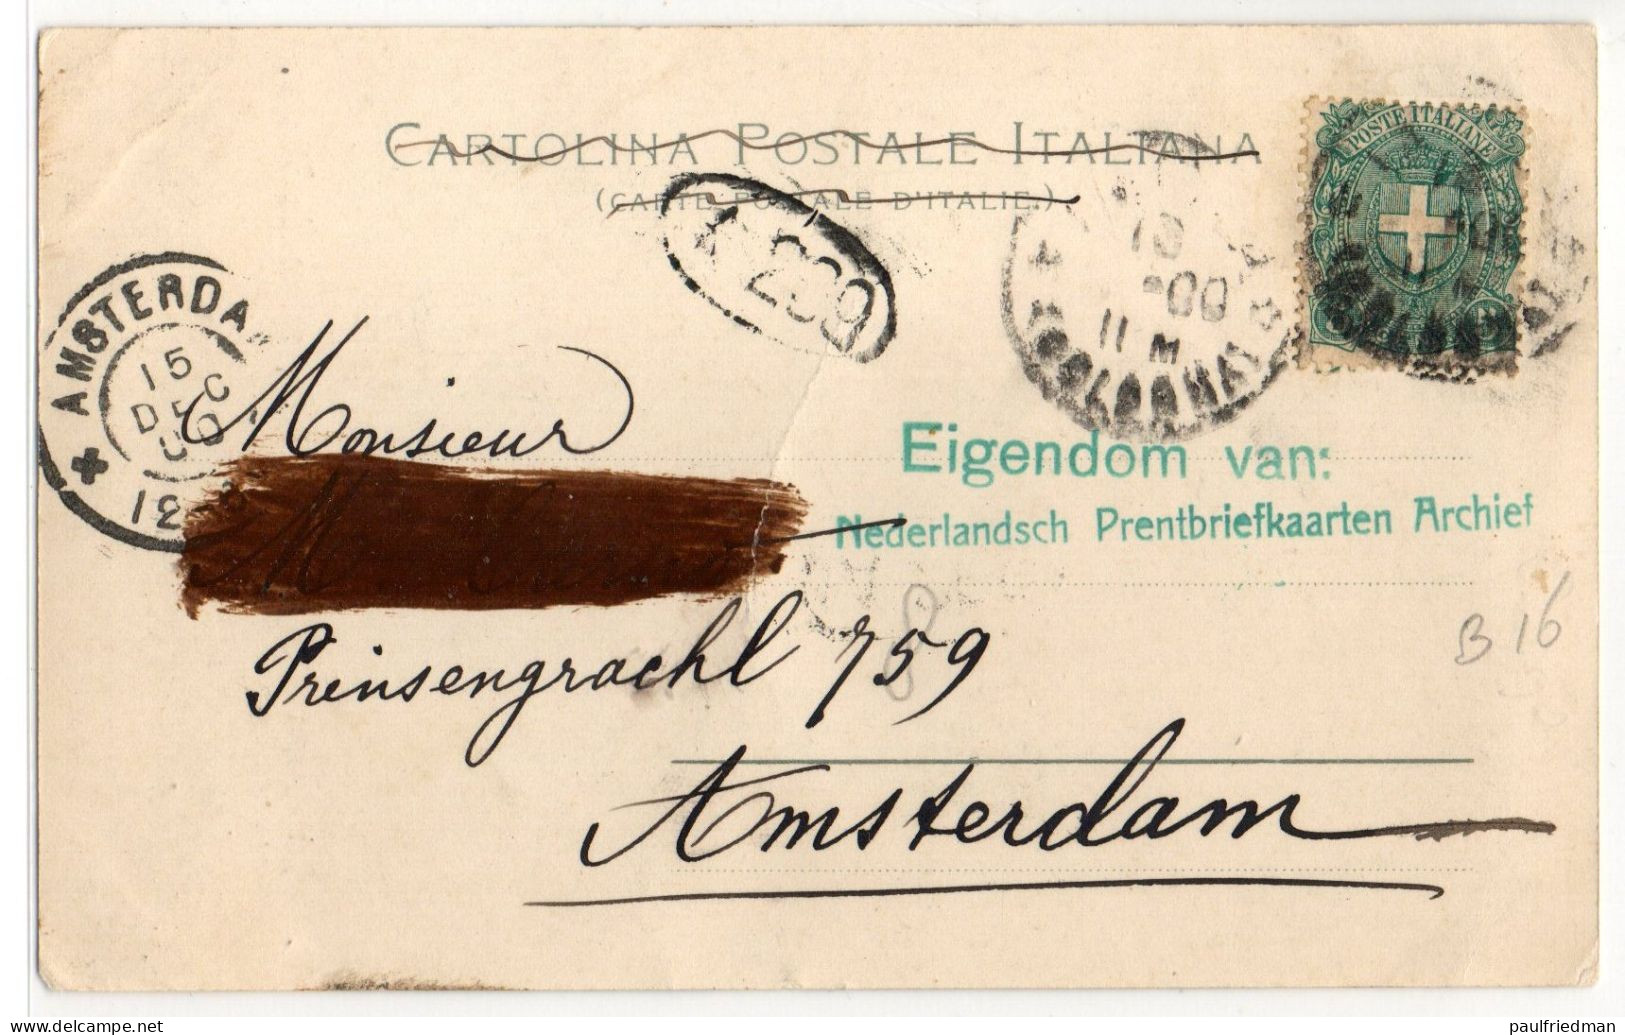 CARTOLINA POSTALE ITALIANA
(CARTE POSTALE D'ITALIE.)
POSTE ITALIANE
209
AMSTERDA
15
DEC
12
00
11 M
Monsieur
Eigendom van:
Nederlandsch Prentbriefkaarten Archief
Prinsengracht 759
B 16
Amsterdam
delcampe.net
paulfriedman